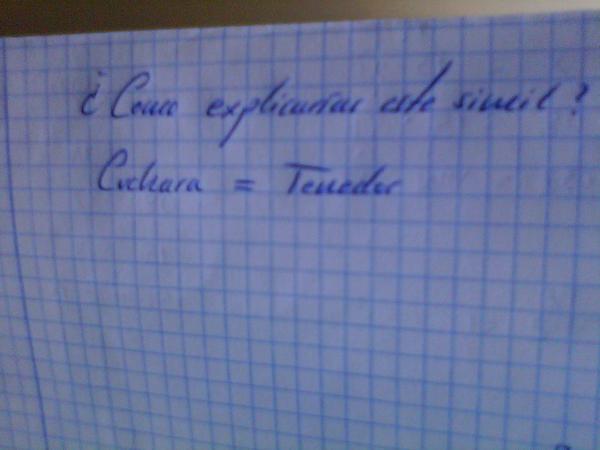 ¿Como explicarias este simil?
Cuchara = Tenedor